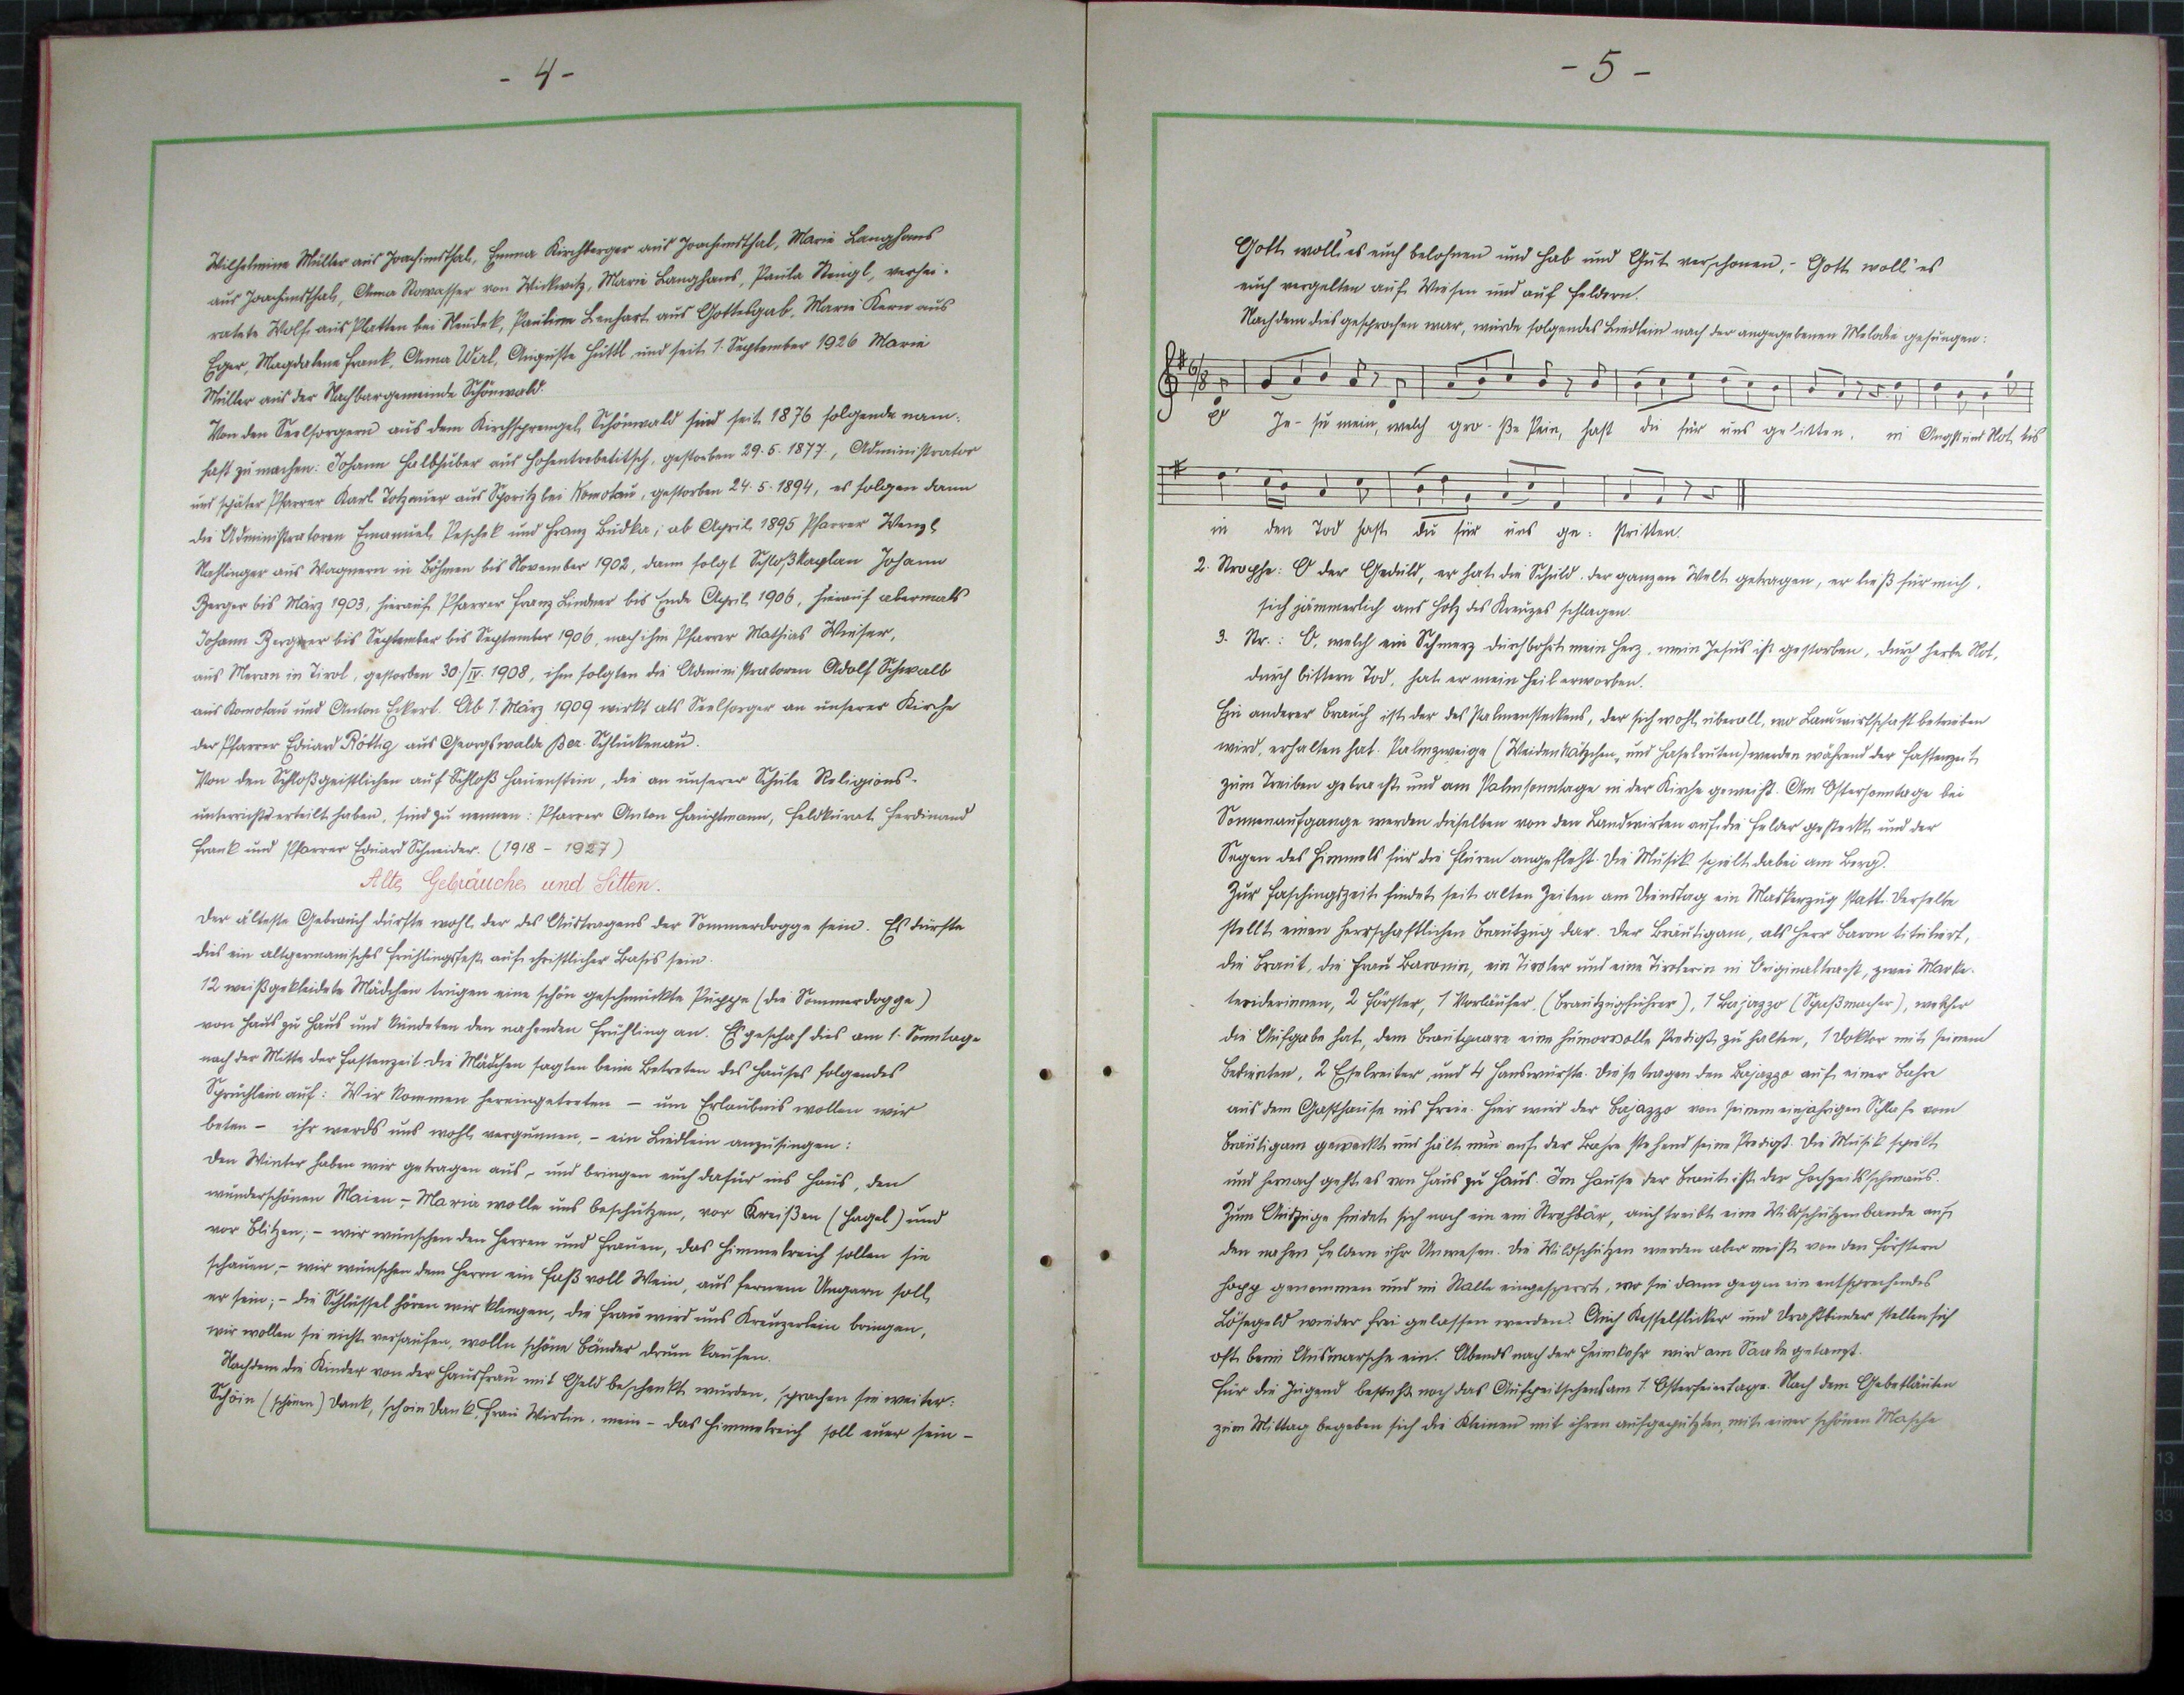 - 4 -
Wilhelmine Müller aus Joachimsthal, Emma Kirchberger aus Joachimsthal, Marie Langhans
aus Joachimsthal, Anna Rowasser von Wickwitz, Marie Langhans, Paula Stengl, verhei-
ratete Wolf aus Platten bei Neudek, Pauline Lenhart aus Gottesgab, Marie Kern aus
Eger, Magdalena Frank, Anna Werl, Auguste Hüttl und seit 1. September 1926 Marie
Müller aus der Nachbargemeinde Schönwald.
Von den Seelsorgern aus dem Kirchsprengel Schönwald sind seit 1876 folgende nam-
haft zu machen: Johann Halbhuber aus Hohentrebetitsch, gestorben 29.5.1877, Administrator
und später Pfarrer Karl Totzauer aus Sporitz bei Komotau, gestorben 24.5.1894, es folgen dann
die Administratoren Emanuel Peschek und Franz Budka; ab April 1895 Pfarrer Wenzl
Nahlinger aus Wagnern in Böhmen bis November 1902, dann folgt Schloßkaplan Johann
Berger bis März 1903, hierauf Pfarrer Franz Lindner bis Ende April 1906, hierauf abermals
Johann Berger bis September bis September 1906, nach ihm Pfarrer Mathias Wieser,
aus Meran in Tirol, gestorben 30./IV. 1908, ihm folgten die Administratoren Adolf Schwalb
aus Komotau und Anton Eckert. Ab 1. März 1909 wirkt als Seelsorger an unserer Kirche
der Pfarrer Eduard Röttig aus Georgswalde Bez. Schluckenau.
Von den Schloßgeistlichen auf Schloß Hauenstein, die an unserer Schule Religions-
unterricht erteilt haben, sind zu nennen: Pfarrer Anton Hauptmann, Feldkurat Ferdinand
Frank und Pfarrer Eduard Schneider. (1918 - 1927)
Alte Gebräuche und Sitten.
Der älteste Gebrauch dürfte wohl der des Austragens der Sommerdogge sein. Es dürfte
dies ein altgermanisches Frühlingsfest auf christlicher Basis sein.
12 weißgekleidete Mädchen trugen eine schön geschmückte Puppe (die Sommerdogge)
von Haus zu Haus und kündeten den nahenden Frühling an. Es geschah dies am 1. Sonntage
nach der Mitte der Fastenzeit. Die Mädchen sagten beim Betreten des Hauses folgendes
Sprüchlein auf: Wir kommen hereingetreten – um Erlaubnis wollen wir
beten – ihr werds uns wohl vergunnen, – ein Liedlein anzusingen:
Den Winter haben wir getragen aus, und bringen euch dafür ins Haus, den
wunderschönen Maien – Maria wolle uns beschützen, vor Kreißen (Hagel) und
vor Blitzen; – wir wünschen den Herren und Frauen, das Himmelreich sollen sie
schauen, – wir wünschen dem Herrn ein Faß voll Wein, aus fernem Ungarn soll
er sein; – die Schlüssel hören wir klingen, die Frau wird uns Kreuzerlein bringen,
wir wollen sie nicht versaufen, wolln schöne Bänder drum kaufen.
Nachdem die Kinder von der Hausfrau mit Geld beschenkt wurden, sprachen sie weiter:
Schöin (schönen) Dank, schoin Dank, Frau Wirtin, mein – das Himmelreich soll euer sein –
- 5 -
Gott woll es euch belohnen und Hab und Gut verschonen, – Gott woll' es
euch vergelten auf Wiesen und auf Feldern.
Nachdem dies gesprochen war, wurde folgendes Liedlein nach der angegebenen Melodie gesungen:
O Je - su mein, welch gro - ße Pein, hast du für uns gelitten, in Angst und Not bis
in den Tod hast du für uns ge - stritten.
2. Strophe: O der Geduld, er hat die Schuld, der ganzen Welt getragen, er ließ für mich,
sich jämmerlich ans Holz des Kreuzes schlagen.
3. Str.: O, welch ein Schmerz durchbohrt mein Herz, mein Jesus ist gestorben, durch herbe Not,
durch bittern Tod, hat er mein Heil erworben.
Ein anderer Brauch ist der des Palmensteckens, der sich wohl überall, wo Landwirtschaft betrieben
wird, erhalten hat. Palmzweige (Weidenkätzchen und Haselruten) werden während der Fastenzeit
zum Treiben gebracht und am Palmsonntage in der Kirche geweiht. Am Ostersonntage bei
Sonnenaufgange werden dieselben von den Landwirten auf die Felder gesteckt und der
Segen des Himmels für die Fluren angefleht. Die Musik spielt dabei am Berg.
Zur Faschingszeit findet seit alten Zeiten am Dienstag ein Maskenzug statt. Derselbe
stellt einen herrschaftlichen Brautzug dar. Der Bräutigam, als Herr Baron tituliert,
die Braut, die Frau Baronin, ein Tiroler und eine Tirolerin in Originaltracht, zwei Marke-
tenderinnen, 2 Förster, 1 Vorläufer (Brautzugführer), 1 Bajazzo (Spaßmacher), welcher
die Aufgabe hat, dem Brautpaare eine humorvolle Predigt zu halten, 1 Doktor mit seinem
Bedienten, 2 Eselreiter, und 4 Hanswürste. Diese tragen den Bajazzo auf einer Bahre
aus dem Gasthause ins Freie. Hier wird der Bajazzo von seinem einjährigen Schlafe vom
Bräutigam geweckt und hält nun auf der Bahre stehend seine Predigt. Die Musik spielt
und hernach geht es von Haus zu Haus. Im Hause der Braut ist der Hochzeitsschmaus.
Zum Aufzuge findet sich noch ein ein Strohbär, auch treibt eine Wildschützenbande auf
den nahen Feldern ihr Unwesen. Die Wildschützen werden aber meist von den Förstern
hopp genommen und im Stalle eingesperrt, wo sie dann gegen ein entsprechendes
Lösegeld wieder frei gelassen werden. Auch Kesselflicker und Drahtbinder stellen sich
oft beim Ausmarsche ein. Abends nach der Heimkehr wird am Saale getanzt.
Für die Jugend besteht noch das Aufpeitschens am 1. Osterfeiertage. Nach dem Gebetläuten
zum Mittag begeben sich die Kleinen mit ihren aufgeputzten, mit einer schönen Masche